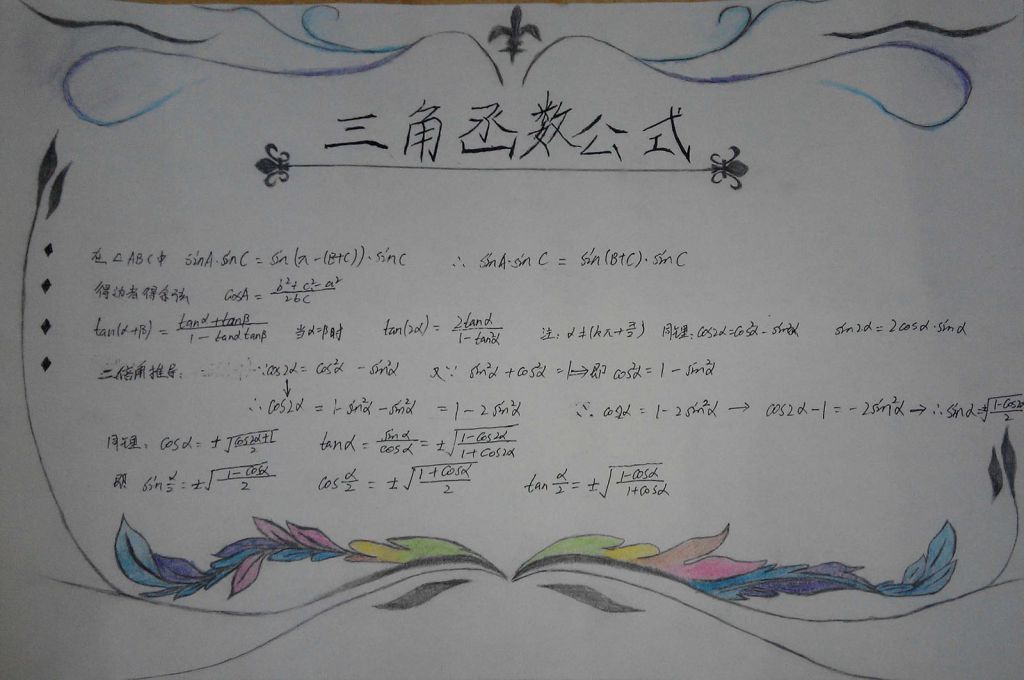 三角函数公式
在△ABC中 sinA·sinC = sin(π-(B+C))·sinC ∴ sinA·sinC = sin(B+C)·sinC
得 cosA = \frac{b²+c²-a²}{2bc}
tan(α+β) = \frac{tanα+tanβ}{1-tanαtanβ} 当α=β时 tan(2α) = \frac{2tanα}{1-tan²α} 注: α≠(kπ+\frac{π}{2}) 同理: cos2α=cos²α-sin²α sin2α=2cosα·sinα
二倍角推导: ∵cos2α = cos²α - sin²α 又∵ sin²α + cos²α = 1 ⇒ 即 cos²α = 1 - sin²α
∴ cos2α = 1-sin²α-sin²α = 1-2sin²α ∵ cos2α = 1-2sin²α → cos2α-1 = -2sin²α → ∴ sinα=±√\frac{1-cos2α}{2}
同理: cosα = ±√\frac{cos2α+1}{2} tanα = \frac{sinα}{cosα} = ±√\frac{1-cos2α}{1+cos2α}
即 sin\frac{α}{2} = ±√\frac{1-cosα}{2} cos\frac{α}{2} = ±√\frac{1+cosα}{2} tan\frac{α}{2} = ±√\frac{1-cosα}{1+cosα}